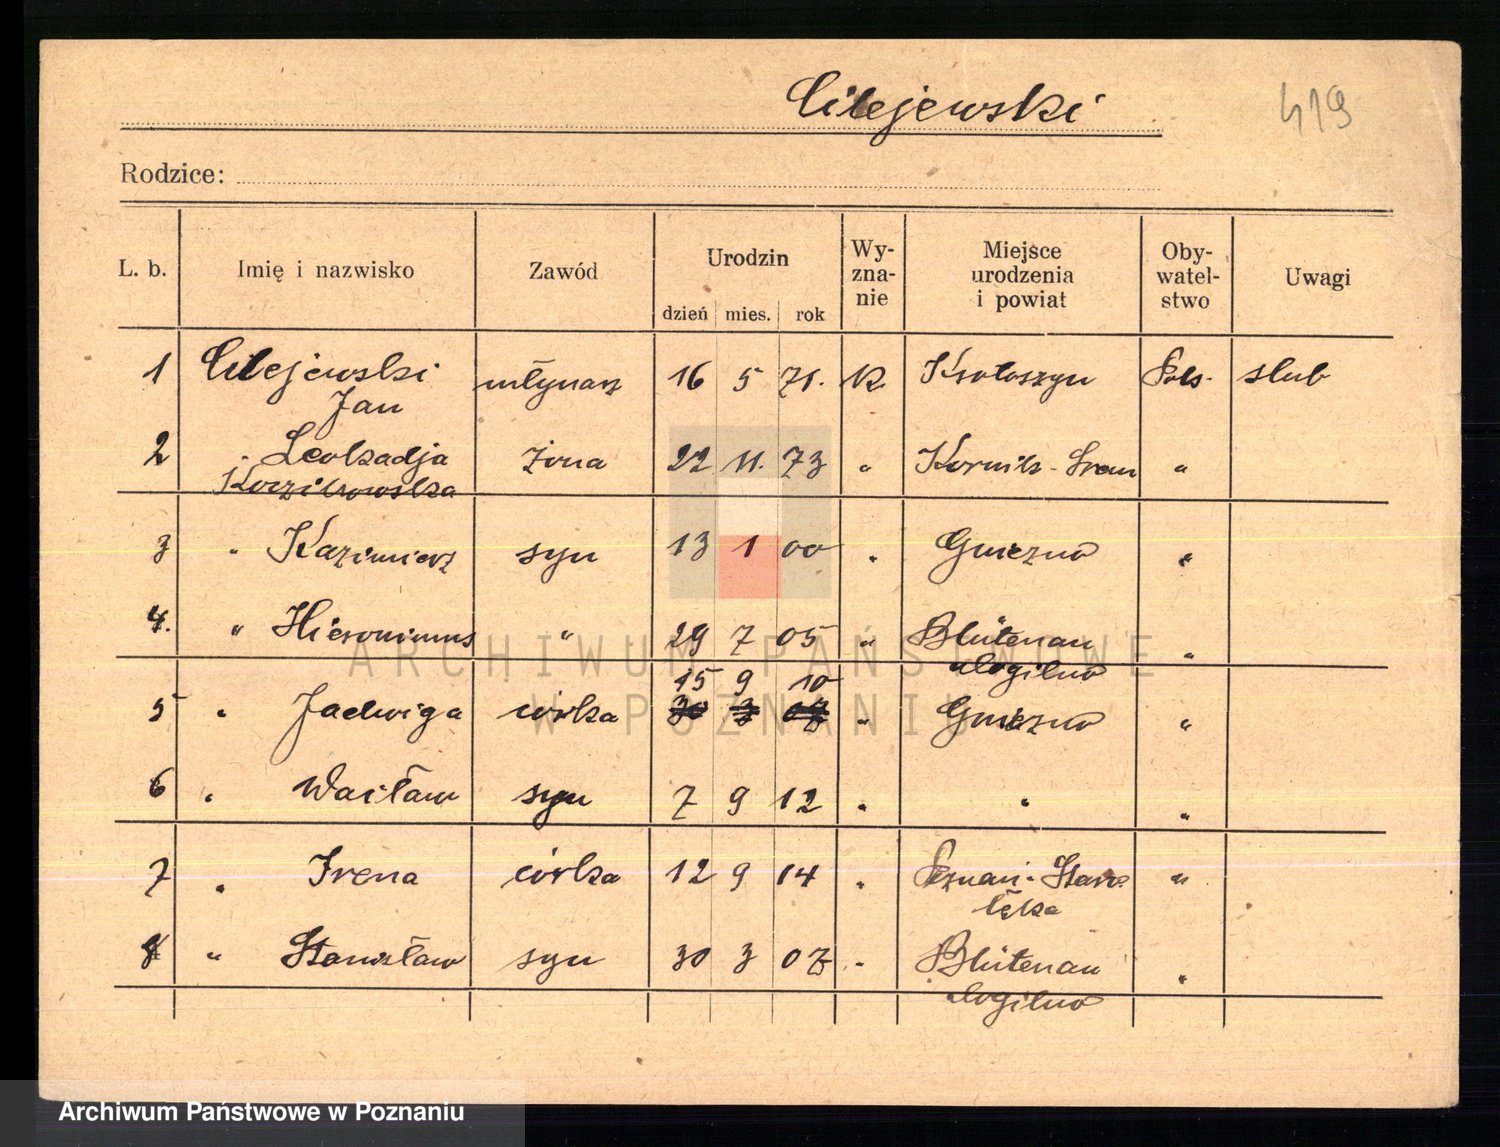 Cilejewski
419
Rodzice:
L. b. Imię i nazwisko Zawód Urodzin dzień mies. rok Wy-zna-nie Miejsce urodzenia i powiat Oby-watel-stwo Uwagi
1 Cilejewski młynarz 16 5 71. K Krotoszyn Pols. slub
Jan
2 " Leokadja żona 22 11. 73 " Kornik - Srem "
3 " Kazimierz syn 13 1 00 " Gniezno "
4. " Hieronimus " 29 7 05 " Blütenau "
Mogilno
15 9 10
5 " Jadwiga córka 30 3 07 " Gniezno "
6 " Wacław syn 7 9 12 " " "
7 " Irena córka 12 9 14 " Poznań - Staro-
łęka "
8 " Stanisław syn 30 3 07 " Blütenau "
Mogilno
ARCHIWUM PAŃSTWOWE
W POZNANIU
Archiwum Państwowe w Poznaniu